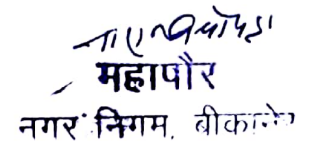 महापौर
नगर निगम, बीकानेर